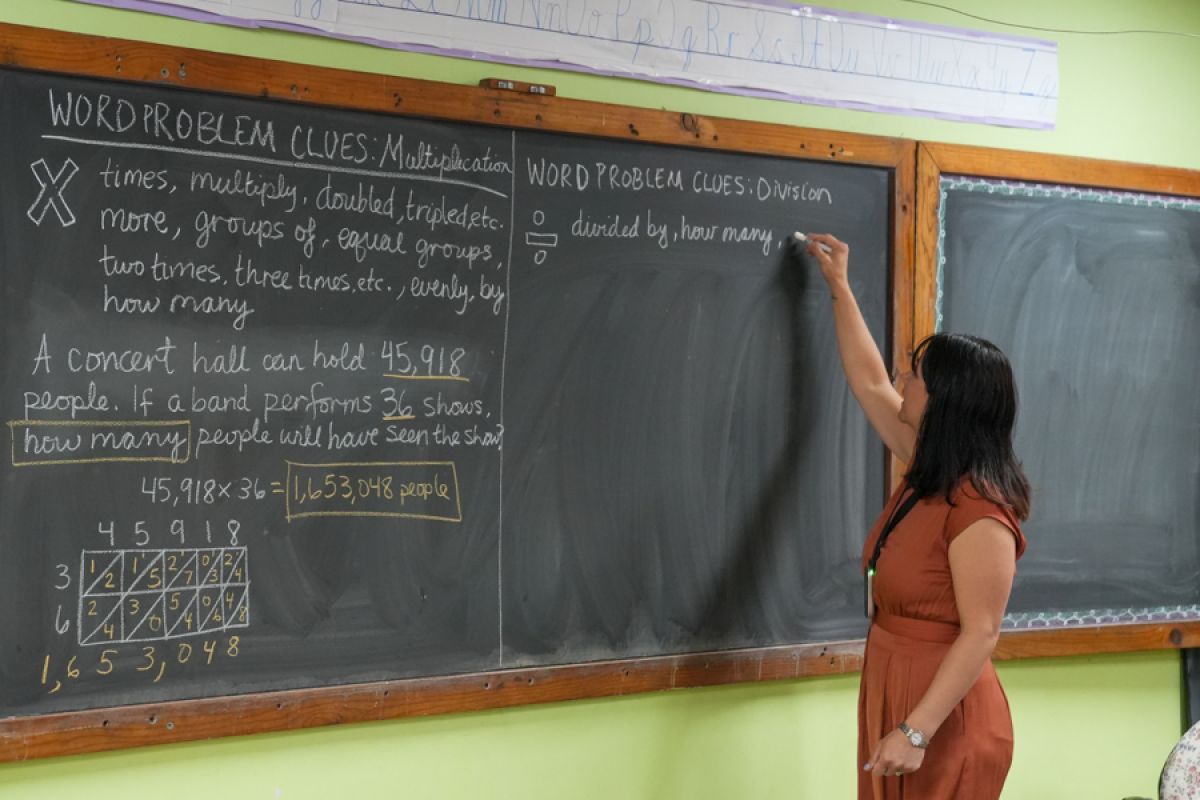 Mm Nn Oo Pp Qq Rr Ss Tt Uu Vv Ww Xx Yy Zz
WORD PROBLEM CLUES: Multiplication
X times, multiply, doubled, tripled, etc.
more, groups of, equal groups,
two times, three times, etc., evenly, by
how many
A concert hall can hold 45,918
people. If a band performs 36 shows,
how many people will have seen the show?
45,918 × 36 = 1,653,048 people
4 5 9 1 8
3 1 2 1 5 2 7 0 3 2 4
6 2 4 3 0 5 4 0 6 4 8
1,6 5 3,0 4 8
WORD PROBLEM CLUES: Division
÷ divided by, how many,